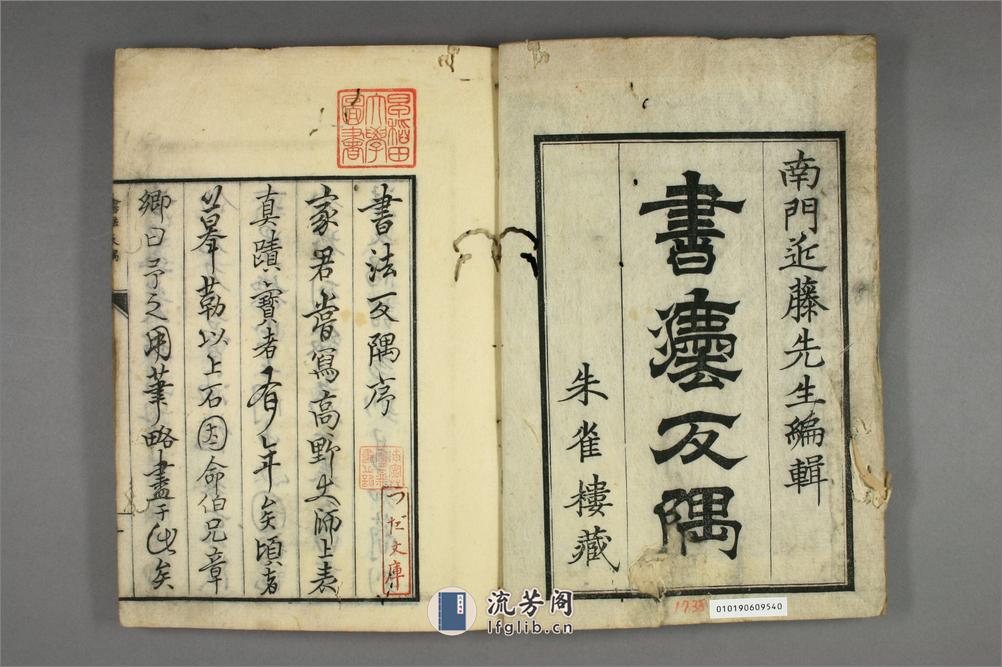 南門近藤先生編輯
書灋反隅
朱雀樓藏
早稻田大學圖書
書法反隅序
家君嘗寫高野大師上表
真蹟寶者有年矣頃者
摹勒以上石因命伯兄章
卿曰予之用筆略盡于此矣
つだ文庫
1738
010190609540
流芳阁
lfglib.cn